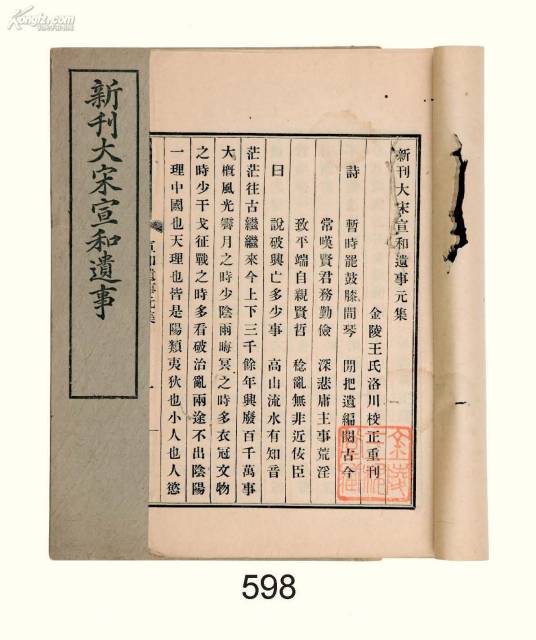 Kongfz.com
新刊大宋宣和遺事
新刊大宋宣和遺事元集
金陵王氏洛川校正重刊
詩　暫時罷鼓膝間琴　閒把遺編閱古今
常嘆賢君務勤儉　深悲庸主事荒淫
致平端自親賢哲　稔亂無非近佞臣
曰　說破興亡多少事　高山流水有知音
茫茫往古繼繼來今上下三千餘年興廢百千萬事
大概風光霽月之時少陰雨晦冥之時多衣冠文物
之時少干戈征戰之時多看破治亂兩途不出陰陽
一理中國也天理也皆是陽類夷狄也小人也人慾
598